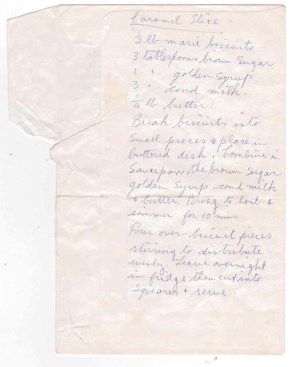 Caramel Slice -
½ lb marie biscuits
3 tablespoons brown Sugar
1 " golden Syrup
3 " cond milk
¼ lb butter.
Break biscuits into
small pieces & place in
buttered dish. Combine in
Saucepan the brown Sugar
golden Syrup cond milk
& butter. Bring to boil &
simmer for 10 mins.
Pour over biscuit pieces
stirring to distribute
evenly. Leave overnight
in fridge then cut into
Squares & serve